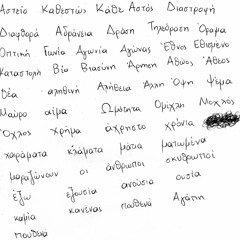 Αστείο Καθεστώς Κάθε Αστός Διαστροφή
Διαφθορά Αδράνεια Δράση Τηλεόραση Όραμα
Οπτική Γωνία Αγωνία Αγώνας Έθνος Εθισμένο
Καταστολή Βία Βιασύνη Άρπαγη Αθώος Άθεος
Θέα αληθινή Αλήθεια Άλλη Όψη Ψέμα
Μαύρο αίμα Ωμότητα Ομίχλη Μοχλός
Όχλος χρήμα άχρηστο χρόνια
χαράματα κλάματα μάτια ματωμένα
μαραζώνουν οι άνθρωποι σκυθρωποί
έξω εξουσία ανούσια ουσία
καμία κανένας πουθενά Αγάπη
πουθενά